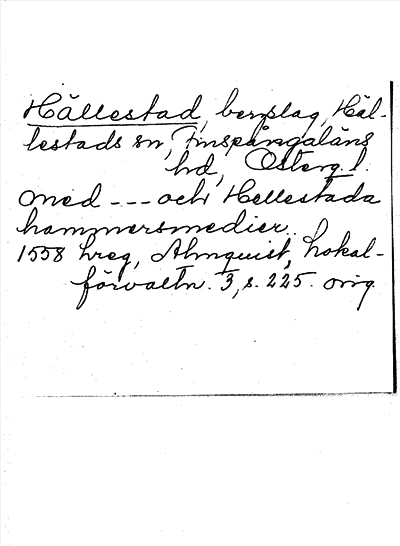 Hällestad, bergslag, Häl-
lestads sn, Finspångaläns
hd, Österg. l.
Med --- och Hellestada
hammersmedier.
1558 hreg, Almquist, Lokal-
förvaltn. 3, s. 225. orig.